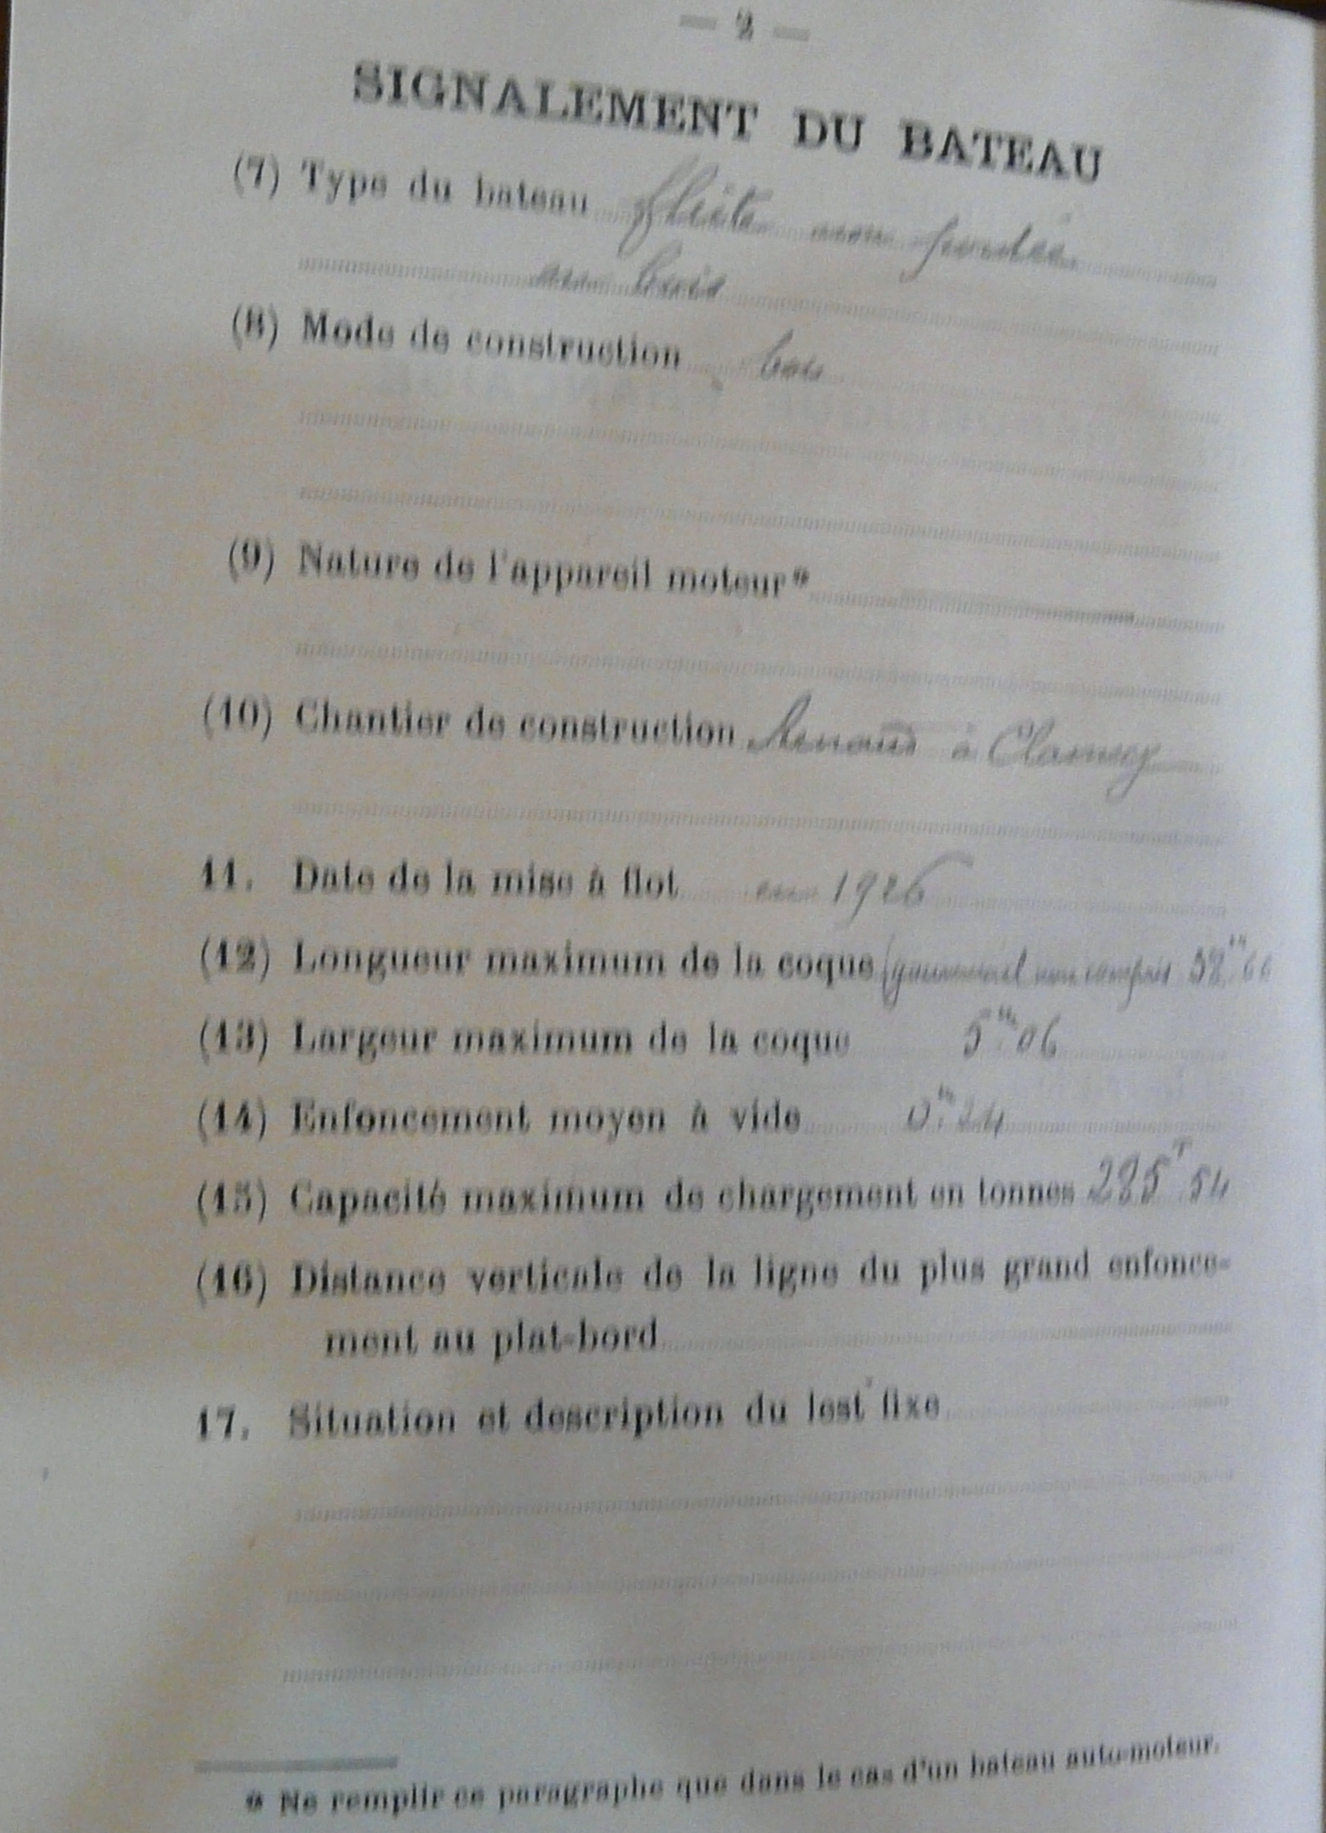 — 2 —
SIGNALEMENT DU BATEAU
(7) Type du bateau flûte non pontée
en bois
(8) Mode de construction bois
(9) Nature de l'appareil moteur*
(10) Chantier de construction à Clamecy
11. Date de la mise à flot en 1926
(12) Longueur maximum de la coque (gouvernail non compris 38m66
(13) Largeur maximum de la coque 5m06
(14) Enfoncement moyen à vide 0m24
(15) Capacité maximum de chargement en tonnes 285T54
(16) Distance verticale de la ligne du plus grand enfonce-
ment au plat-bord
17. Situation et description du lest fixe
* Ne remplir ce paragraphe que dans le cas d'un bateau auto-moteur.